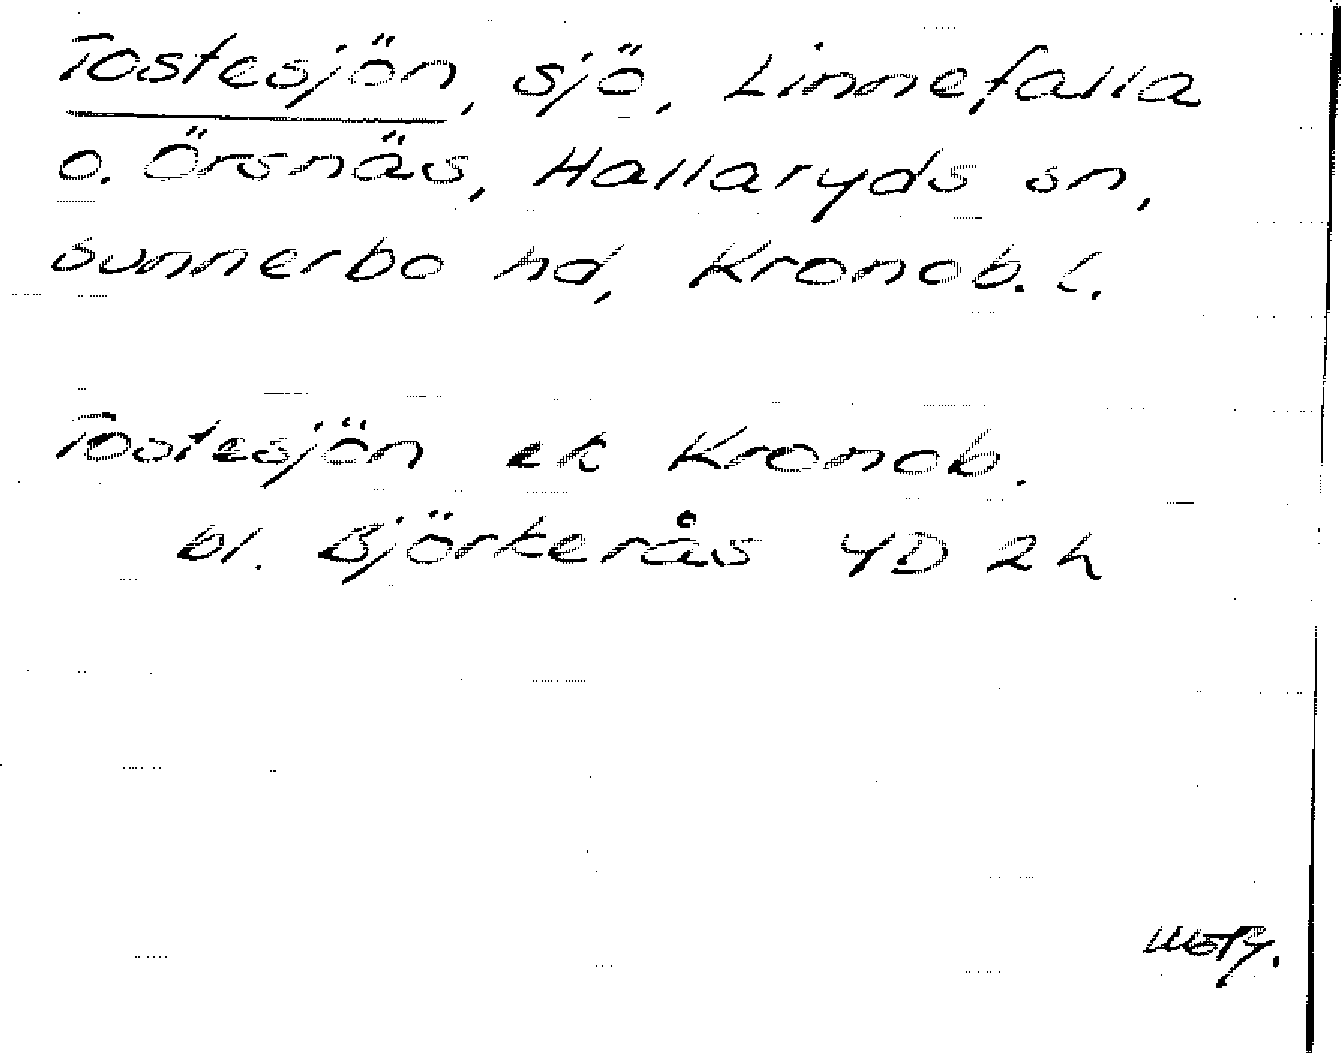 Tostesjön, sjö, Linnefalla
o. Örsnäs, Hallaryds sn,
Sunnerbo hd, Kronob. l.
Tostesjön ek Kronob.
bl. Björkerås 4D 2h